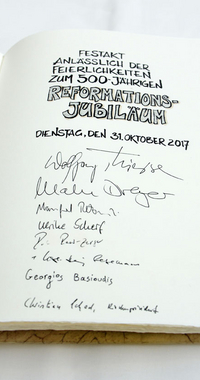 FESTAKT
ANLÄSSLICH DER
FEIERLICHKEITEN
ZUM 500-JÄHRIGEN
REFORMATIONS-
JUBILÄUM
DIENSTAG, DEN 31. OKTOBER 2017
Wolfgang Thierse
Malu Dreyer
Manfred
Ulrike Scherf
Georgios Basioudis
Christian